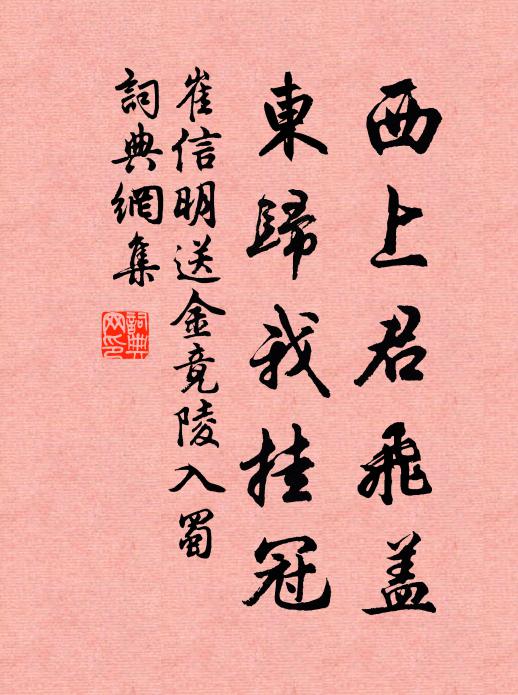 西上君飛蓋
東歸我挂冠
崔信明送金竟陵入蜀
詞典網集
詞典網印